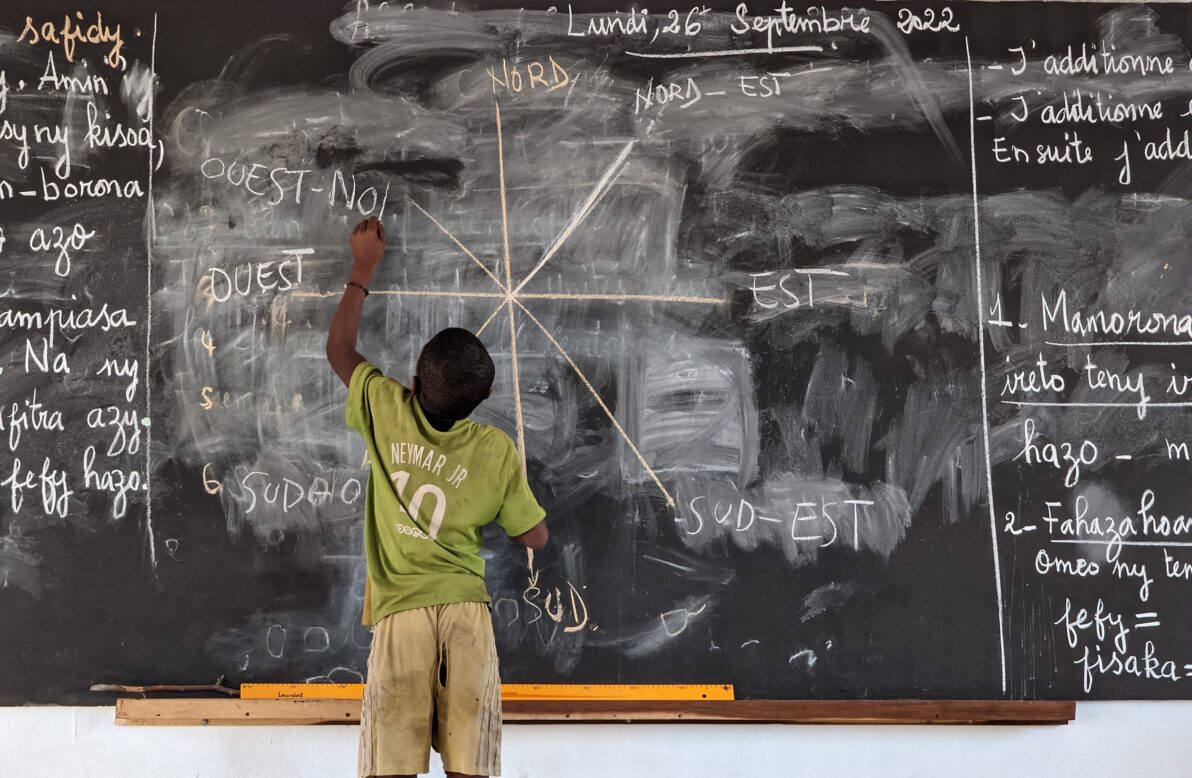 safidy.
Amin
ny kisoa,
n-borona
azo
ampiasa
. Na ny
fitra azy.
fefy hazo.
Lundi, 26 Septembre 2022
NORD
NORD-EST
OUEST-NO
OUEST
EST
4
5
6
SUD-O
SUD-EST
SUD
NEYMAR JR
10
Lauréat
- J'additionne
- J'additionne
Ensuite j'add
1- Mamorona
ireto teny
hazo - m
2- Fahazahoa
Omeo ny ten
fefy =
fisaka =